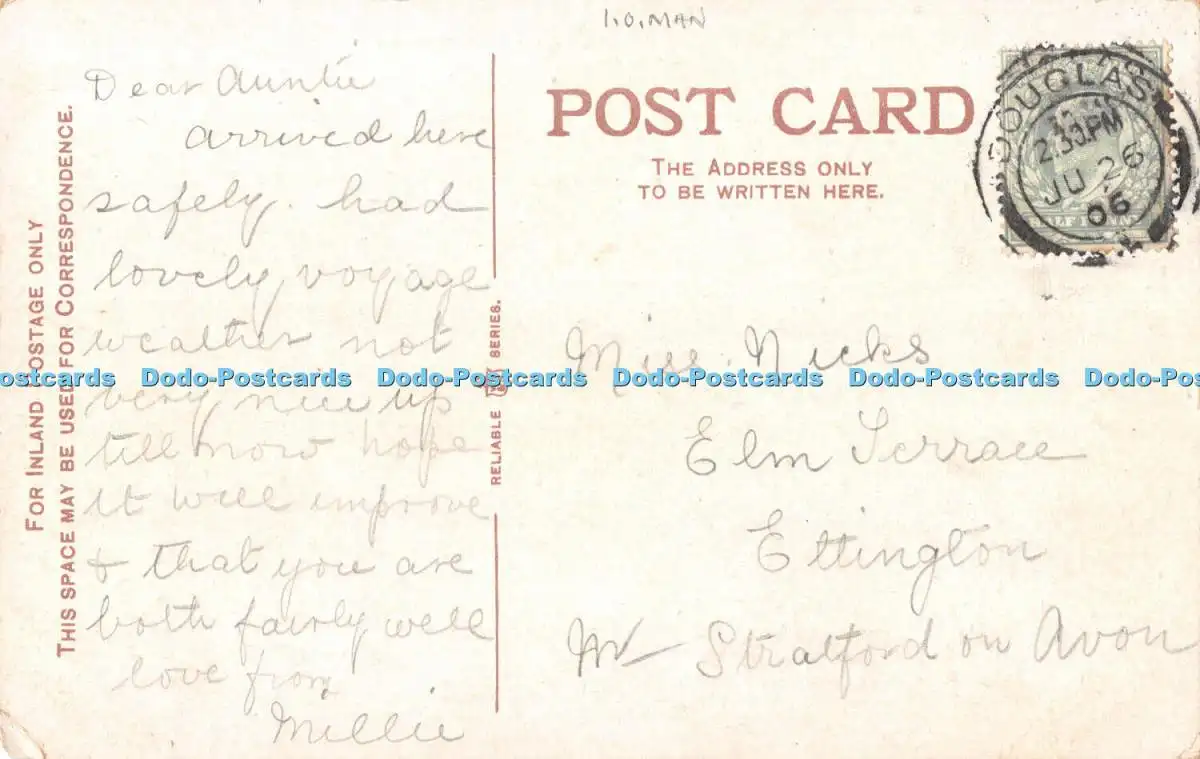 I.O.MAN
POST CARD
THE ADDRESS ONLY
TO BE WRITTEN HERE.
DOUGLAS
2.30PM
JU 26
06
HALF PENNY
FOR INLAND POSTAGE ONLY
THIS SPACE MAY BE USED FOR CORRESPONDENCE.
Dear Auntie
arrived here
safely. had
lovely voyage
weather not
very nice up
till now hope
it will improve
& that you are
both fairly well
love from
Millie
RELIABLE SERIES.
Miss Nicks
Elm Terrace
Ettington
Nr Stratford on Avon
ostcards Dodo-Postcards Dodo-Postcards Dodo-Postcards Dodo-Postcards Dodo-Pos